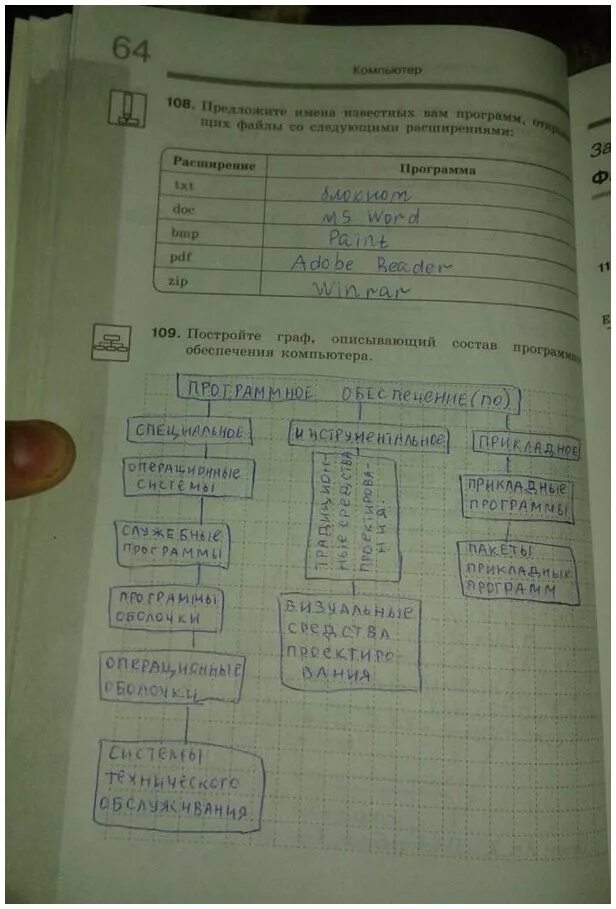 64
Компьютер
108. Предложите имена известных вам программ,
щих файлы со следующими расширениями:
Расширение Программа
txt блокнот
doc MS Word
bmp Paint
pdf Adobe Reader
zip Winrar
109. Постройте граф, описывающий состав
обеспечения компьютера.
ПРОГРАММНОЕ ОБЕСПЕЧЕНИЕ (ПО)
СПЕЦИАЛЬНОЕ
ИНСТРУМЕНТАЛЬНОЕ
ПРИКЛАДНОЕ
ОПЕРАЦИОННЫЕ
СИСТЕМЫ
СЛУЖЕБНЫЕ
ПРОГРАММЫ
ПРОГРАММЫ
ОБОЛОЧКИ
ОПЕРАЦИОННЫЕ
ОБОЛОЧКИ
СИСТЕМЫ
ТЕХНИЧЕСКОГО
ОБСЛУЖИВАНИЯ
ТРАДИЦИОН-
НЫЕ СРЕДСТВА
ПРОЕКТИРОВА-
НИЯ.
ВИЗУАЛЬНЫЕ
СРЕДСТВА
ПРОЕКТИРО-
ВАНИЯ
ПРИКЛАДНЫЕ
ПРОГРАММЫ
ПАКЕТЫ
ПРИКЛАДНЫХ
ПРОГРАММ
За
Ф
11